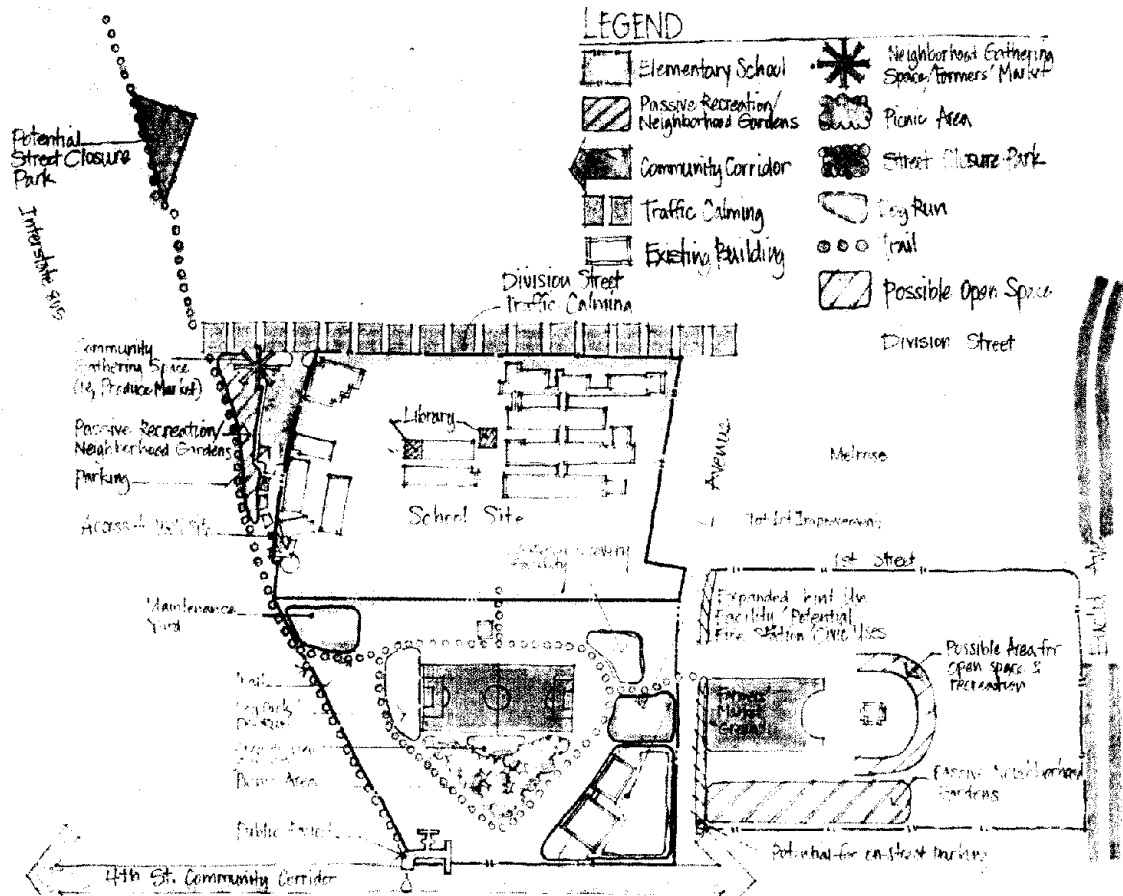 LEGEND
Elementary School
Passive Recreation/
Neighborhood Gardens
Community Corridor
Traffic Calming
Existing Building
Neighborhood Gathering
Space/Farmers' Market
Picnic Area
Street Closure Park
Dog Run
Trail
Possible Open Space
Potential
Street Closure
Park
Interstate 805
Division Street
Traffic Calming
Division Street
Community
Gathering Space
Produce Market)
Passive Recreation/
Neighborhood Gardens
Parking
Access
Library
School Site
Avenue
Melrose
Tot Lot Improvement
1st Street
Facility
Maintenance
Yard
Expanded Joint Use
Facility, Potential
Fire Station, Civic Uses
Possible Area for
open space &
recreation
Euclid Ave
Trail
Farmers'
Market
Picnic Area
Public
Passive Neighborhood
Gardens
Potential for on-street parking
4th St. Community Corridor